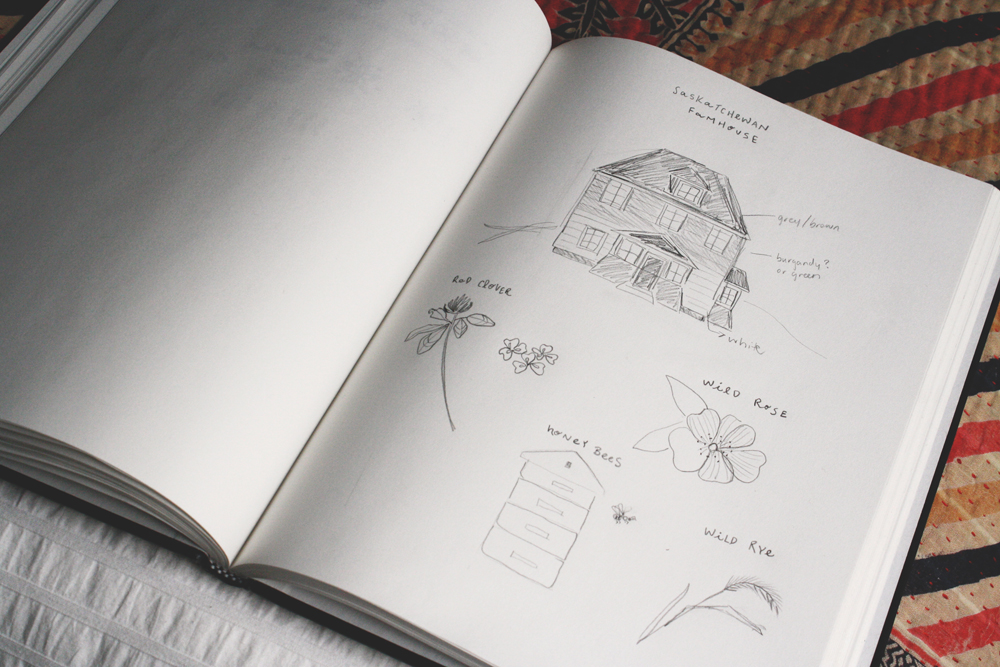 SasKaTCHEWAN
FaMHOUSE
grey/brown
burgandy?
or green
white
ReD CLOVER
WilD ROSE
HoNeY BeeS
WilD Rye